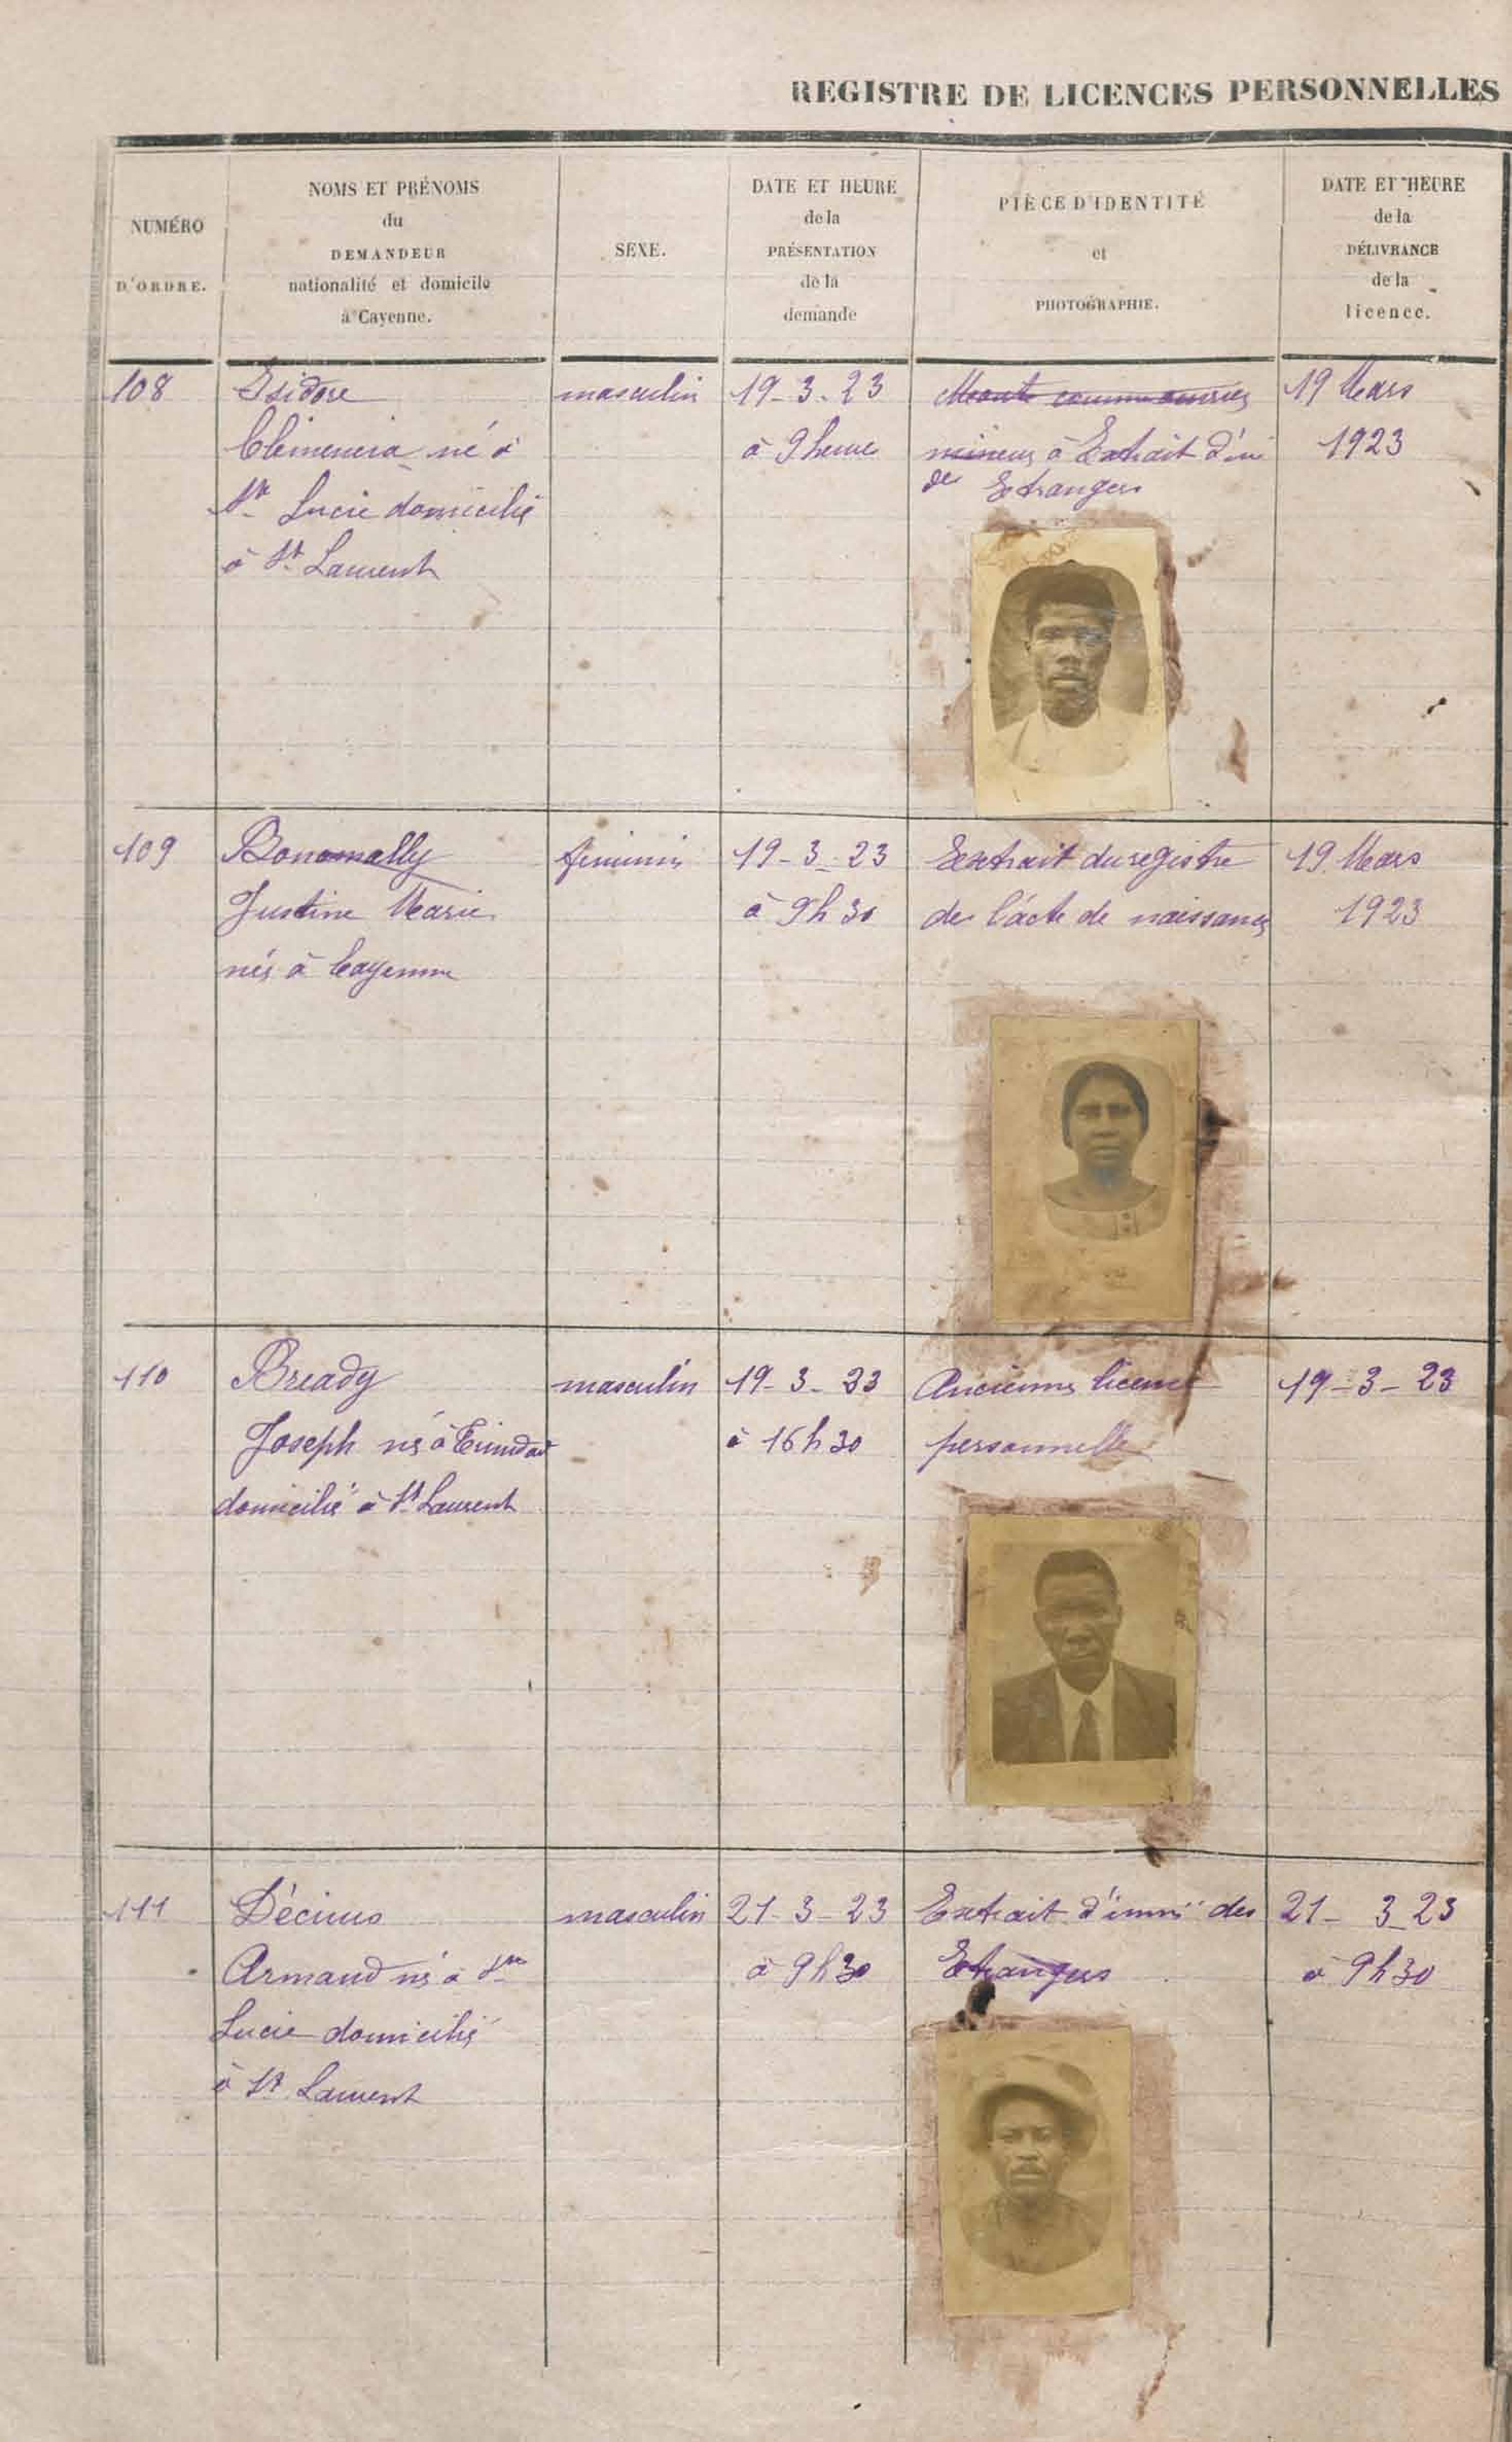 REGISTRE DE LICENCES PERSONNELLES
NUMÉRO
D'ORDRE.
NOMS ET PRÉNOMS
du
DEMANDEUR
nationalité et domicile
à Cayenne.
SEXE.
DATE ET HEURE
de la
PRÉSENTATION
de la
demande
PIÈCE D'IDENTITÉ
et
PHOTOGRAPHIE.
DATE ET HEURE
de la
DÉLIVRANCE
de la
licence.
108
Isidore
né à
Ste Lucie domicilié
à St Laurent
masculin
19-3-23
à 9 heure
à Extrait d'im
des Etrangers
19 Mars
1923
109
Bonomally
Justine Marie
née à Cayenne
feminin
19-3-23
à 9h30
Extrait du registre
de l'acte de naissance
19 Mars
1923
110
Bready
Joseph né à Trinidad
domicilié à St Laurent
masculin
19-3-23
à 16h30
Ancienne licence
personnelle
19-3-23
111
Décimus
Armand né à Ste
Lucie domicilié
à St Laurent
masculin
21-3-23
à 9h30
Extrait d'imm des
Etrangers
21-3-23
à 9h30